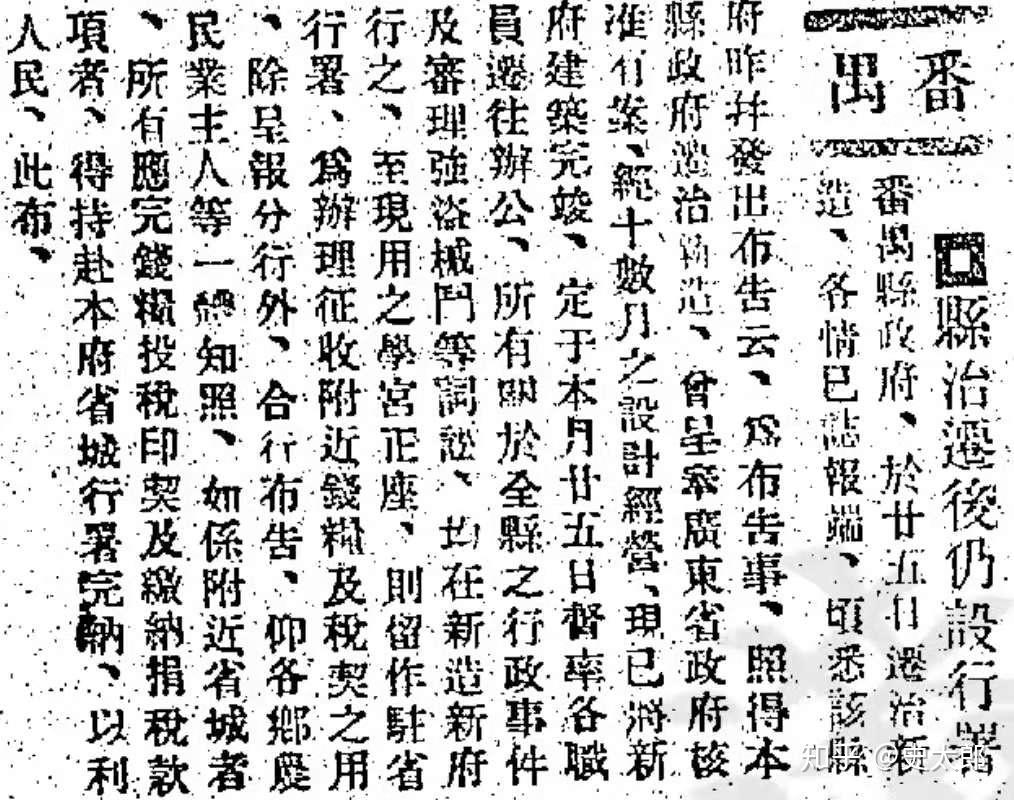 番禺
縣治遷後仍設行署
番禺縣政府、於廿五日遷治新
造、各情已誌報端、頃悉該縣
府昨幷發出布告云、爲布告事、照得本
縣政府遷治新造、曾呈奉廣東省政府核
准有案、經十數月之設計經營、現已將新
府建築完竣、定于本月廿五日督率各職
員遷往辦公、所有關於全縣之行政事件
及審理強盜械鬥等詞訟、均在新造新府
行之、至現用之學宮正座、則留作駐省
行署、爲辦理征收附近錢糧及稅契之用
、除呈報分行外、合行布告、仰各鄉農
民業主人等一體知照、如係附近省城者
、所有應完錢糧投稅印契及繳納捐稅款
項者、得持赴本府省城行署完納、以利
人民、此布、
知乎 @史太郎